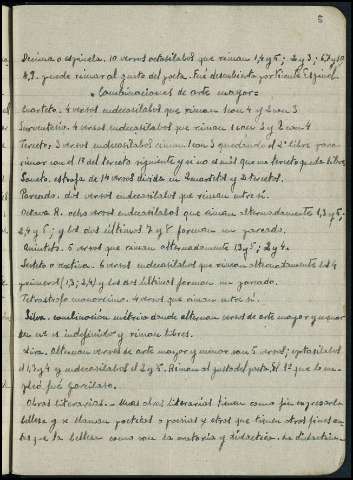 8
Décima o espinela. 10 versos octosilabos que riman 1,4 y 5; 2 y 3; 6,7 y 10
8,9. puede rimar al gusto del poeta. Fué descubierta por Vicente Espinel
"Combinaciones de arte mayor"
Cuarteto. 4 versos endecasilabos que riman 1 con 4 y 2 con 3
Serventesio. 4 versos endecasilabos que riman 1 con 3 y 2 con 4
Terceto. 3 versos endecasilabos riman 1 con 3 quedando el 2º libre para
rimar con el 1º del terceto siguiente y si no es más que un terceto queda libre
Soneto. estrofa de 14 versos divida en 2 cuartetos y 2 tercetos.
Pareado. dos versos endecasilabos que riman entre sí.
Octava R. ocho versos endecasilabos que riman alternadamente 1,3 y 5;
2,4 y 6; y los dos últimos 7 y 8 forman un pareado.
Quinteto. 5 versos que riman alternadamente 1,3 y 5; 2 y 4.
Sexteto o sextina. 6 versos endecasilabos que riman alternadamente los 4
primeros (1,3; 2,4) y los dos últimos forman un pareado.
Tetrastrofo monorrimo. 4 versos que riman entre sí.
Silva. combinación métrica donde alternan versos de arte mayor y menor
es indefinido y riman libres.
Lira. Alternan versos de arte mayor y menor son 5 versos; eptasilabos
el 1,3 y 4 y endecasilabos el 2 y 5. Riman al gusto del poeta. El 1º que lo em-
pleó fué Garcilaso.
Obras literarias. - Unas obras literarias tienen como fin expresar la
belleza y se llaman poéticas o poesias y otros que tienen otros fines an-
tes que la belleza como son la oratoria y didáctica. La didáctica